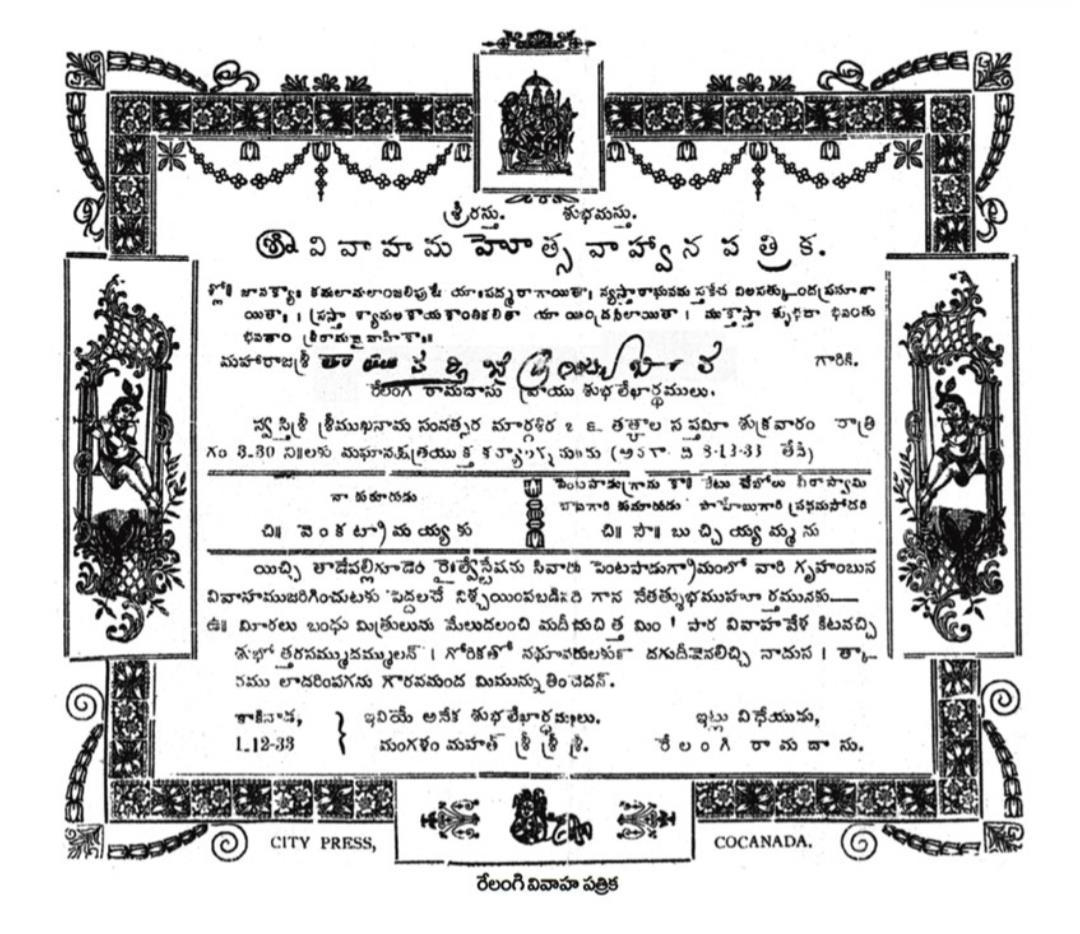 శ్రీరస్తు. శుభమస్తు.
శ్రీ వివాహమహోత్సవాహ్వానపత్రిక.
శ్లో॥ జానక్యాః కమలామలాంజలిపుటే యాఃపద్మరాగాయితాః న్యస్తారాఘవమస్తకేచ విలసత్కుందప్రసూనా
యితాః । స్రస్తా శ్యామలకాయకాంతికలితా యా యింద్రనీలాయితా । ముక్తాస్తా శ్శుభదా భవంతు
భవతాం శ్రీరామవైవాహికాః॥
మహారాజశ్రీ గారికి.
రేలంగి రామదాసు వ్రాయు శుభలేఖార్థములు.
స్వస్తిశ్రీ శ్రీముఖనామ సంవత్సర మార్గశిర తత్కాల సప్తమీ శుక్రవారం రాత్రి
గం 3-30 ని॥లకు మఘానక్షత్రయుక్త కన్యాలగ్న మందు (అనగా ది 8-12-33 తేదీ)
నా కుమారుడు
చి॥ వెంకట్రామయ్యకు
పెంటపాడుగ్రామ కాపు వీరాస్వామి
గారి కుమారుడు గారి ప్రథమపోదరి
చి॥ సౌ॥ బుచ్చియ్యమ్మను
యిచ్చి తాడేపల్లిగూడెం రైల్వేస్టేషను సివారు పెంటపాడుగ్రామంలో వారి గృహంబున
వివాహముజరిగించుటకు పెద్దలచే నిశ్చయింపబడినది గాన నేతత్శుభముహూర్తమునకు—
ఉ॥ మీరలు బంధు మిత్రులును మేలుదలంచి మదీయచిత్త మిం । పార వివాహవేళ కిటవచ్చి
శుభోత్తరసమ్ముదమ్ములన్ । గోరికతో నధూవరులకుం దగుదీవెనలిచ్చి నాదుస । త్కా
రము లాదరింపగను గౌరవమంద మిమున్నుతించెదన్.
కాకినాడ,
1-12-33
ఇవియే అనేక శుభలేఖార్థములు.
మంగళం మహత్ శ్రీ శ్రీ శ్రీ.
ఇట్లు విధేయుడు,
రేలంగి రామదాసు.
CITY PRESS, COCANADA.
రేలంగి వివాహ పత్రిక